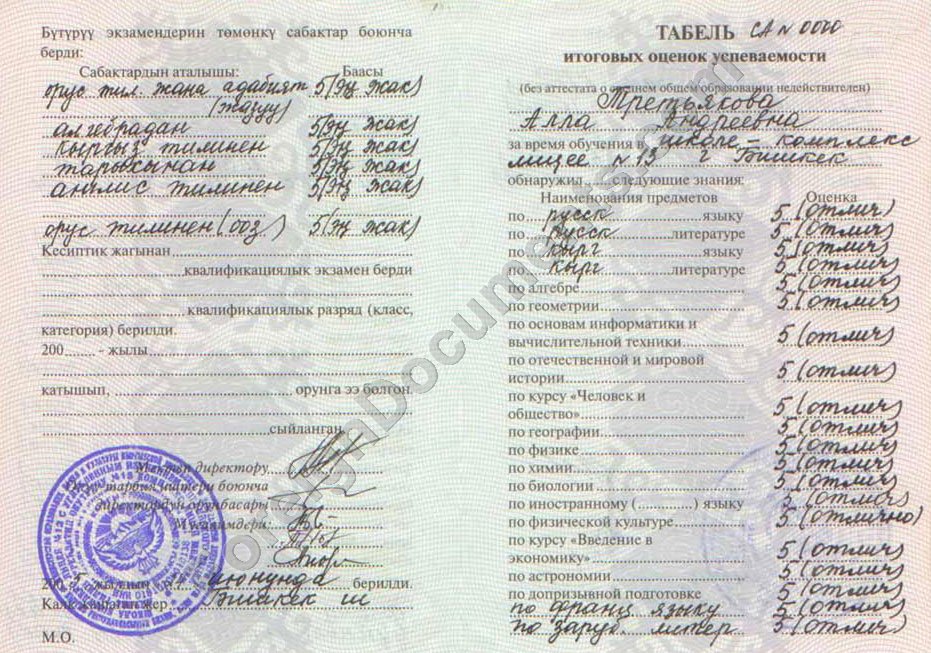 Бүтүрүү экзамендерин төмөнкү сабактар боюнча
берди:
Сабактардын аталышы: Баасы
орус тил. жана адабият 5(эң жак)
(жазуу)
алгебрадан 5(эң жак)
кыргыз тилинен 5(эң жак)
тарыхынан 5(эң жак)
англис тилинен 5(эң жак)
орус тилинен (ооз) 5(эң жак)
Кесиптик жагынан
квалификациялык экзамен берди
квалификациялык разряд (класс,
категория) берилди.
200 - жылы
катышып, орунга ээ болгон.
сыйланган.
Мектеп директору
Окуу-тарбия иштери боюнча
директордун орунбасары
Мугалимдери:
200 5 жылдын июнунда берилди.
Калк жайгашкан жер Бишкек ш
М.О.
ТАБЕЛЬ СА N 0000
итоговых оценок успеваемости
(без аттестата о среднем общем образовании недействителен)
Третьякова
Алла Андреевна
за время обучения в школе - комплекс
лицее N 13 г Бишкек
обнаружил следующие знания:
Наименования предметов Оценка
по русск языку 5 (отлич)
по русск литературе 5 (отлич)
по кырг языку 5 (отлич)
по кырг литературе 5 (отлич)
по алгебре 5 (отлич)
по геометрии 5 (отлич)
по основам информатики и
вычислительной техники 5 (отлич)
по отечественной и мировой
истории 5 (отлич)
по курсу «Человек и
общество» 5 (отлич)
по географии 5 (отлич)
по физике 5 (отлич)
по химии 5 (отлич)
по биологии 5 (отлич)
по иностранному ( ) языку 5 (отлич)
по физической культуре 5 (отлично)
по курсу «Введение в
экономику» 5 (отлич)
по астрономии 5 (отлич)
по допризывной подготовке 5 (отлич)
по франц языку 5 (отлич)
по заруб. литер 5 (отлич)